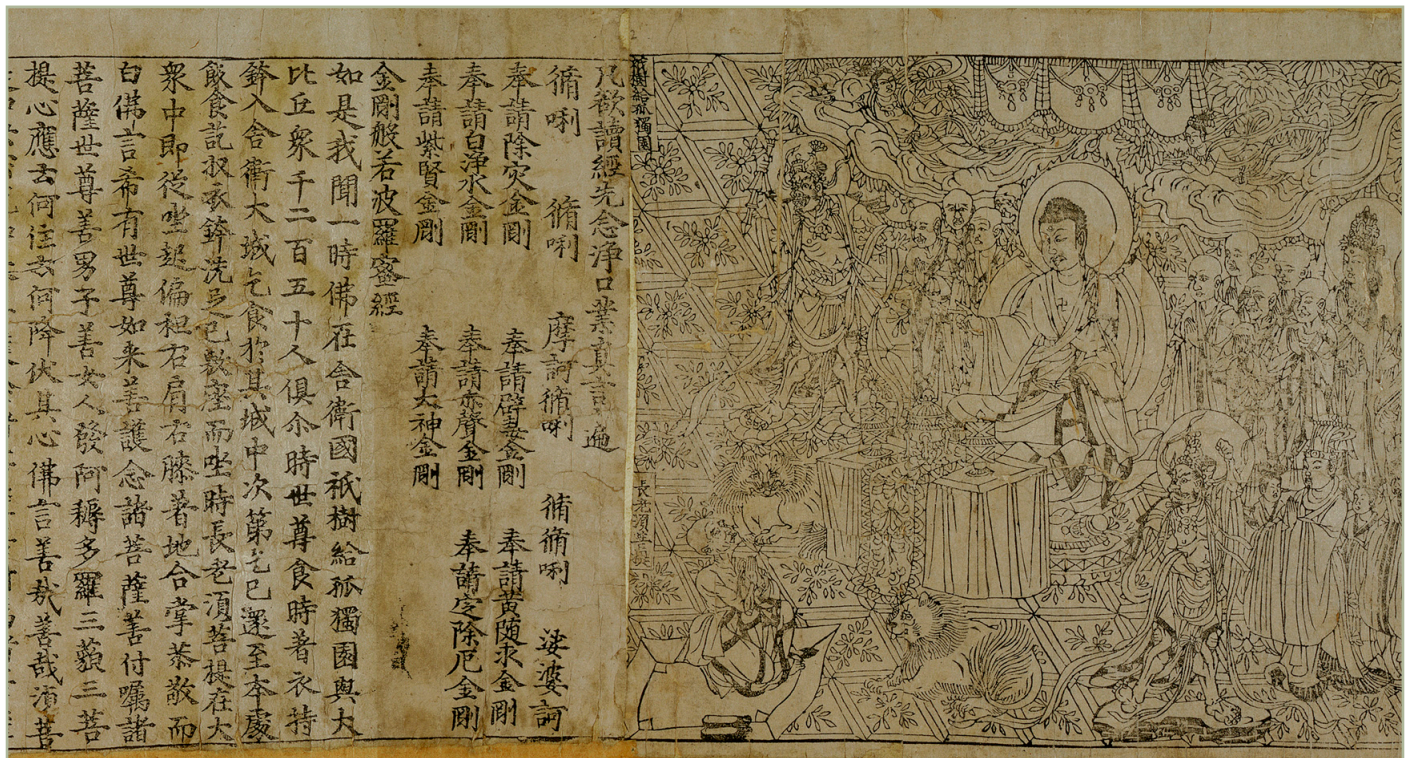 祇樹給孤獨園
長老須菩提
凡欲讀經先念淨口業真言遍
脩唎 脩唎 摩訶脩唎 脩脩唎 娑婆訶
奉請除灾金剛 奉請辟毒金剛 奉請黃随求金剛
奉請白淨水金剛 奉請赤聲金剛 奉請定除厄金剛
奉請紫賢金剛 奉請大神金剛
金剛般若波羅蜜經
如是我聞一時佛在舍衛國祇樹給孤獨園與大
比丘衆千二百五十人俱尒時世尊食時著衣持
鉢入舍衛大城乞食於其城中次第乞已還至本處
飯食訖收衣鉢洗足已敷座而坐時長老須菩提在大
衆中即從坐起偏袒右肩右膝著地合掌恭敬而
白佛言希有世尊如来善護念諸菩薩善付囑諸
菩薩世尊善男子善女人發阿耨多羅三藐三菩
提心應云何住云何降伏其心佛言善哉善哉須菩